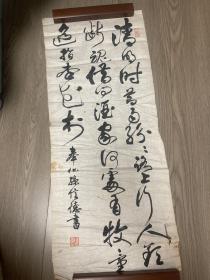 清明时节雨纷纷路上行人欲
断魂借问酒家何处有牧童
遥指杏花村
書